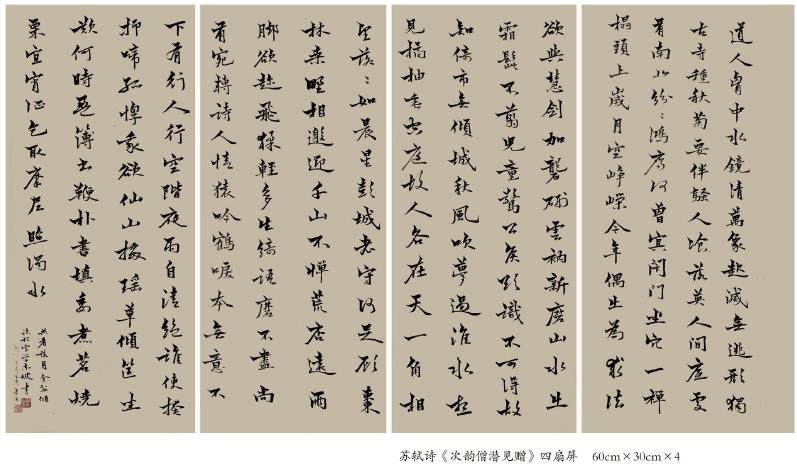 道人胷中水鏡清萬象起滅無逃形獨
古寺種秋菊要伴騷人飡落英人間底處
有南北紛〻鴻雁何曾冥閉門坐穴一禪
榻頭上歲月空崢嶸今年偶出為求法
欲與慧劍加礱硎雲衲新磨山水出
霜髭不翦兒童驚公侯欲識不可得故
知倚市無傾城秋風吹夢過淮水想
見橘柚垂空庭故人各在天一角相
望落〻如晨星彭城老守何足顧棗
林桑野相邀迎千山不憚荒店遠兩
脚欲趁飛猱輕多生綺語磨不盡尚
有宛轉詩人情猿吟鶴唳本無意不
下有行人行空階夜雨自清絕誰使掩
抑啼孤惸我欲仙山掇瑤草傾筐坐
歎何時盈簿書鞭扑晝填委煮茗燒
栗宜宵征乞取摩尼照濁水
共看落月金盆傾
苏轼诗《次韵僧潜见赠》四扇屏 60cm×30cm×4